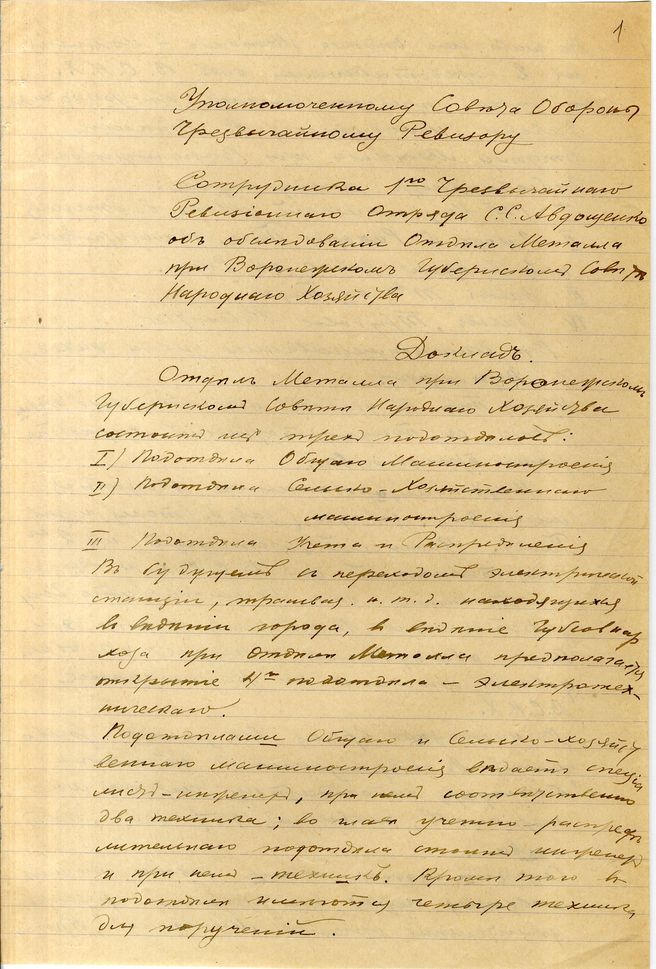 1
Уполномоченному Совета Обороны
Чрезвычайному Ревизору
Сотрудника 1го Чрезвычайнаго
Ревизіоннаго Отряда С.С. Авдощенко
объ обследованіи Отдела Металла
при Воронежскомъ Губернскомъ Совете
Народнаго Хозяйства
Докладъ.
Отделъ Металла при Воронежскомъ
Губернскомъ Совете Народнаго Хозяйства
состоитъ изъ трехъ подотделовъ:
I) Подотдела Общаго Машиностроенія
II) Подотдела Сельско-Хозяйственнаго
машиностроенія
III Подотдела Учета и Распределенія
Въ будущемъ съ переходомъ электрической
станціи, трамвая и.т.д. находящихся
въ веденіи города, въ веденіе Губсовнар
хоза при Отделе Металла предполагается
открытіе 4го подотдела – электротех-
ническаго.
Подотделами Общаго и Сельско-хозяйст
веннаго машиностроенія ведаетъ спеціа
листъ-инженеръ, при немъ соответственно
два техника; во главе учетно-распреде
лительнаго подотдела стоитъ инженеръ
и при немъ – техникъ. Кроме того въ
подотделе имеются четыре техника
для порученій.